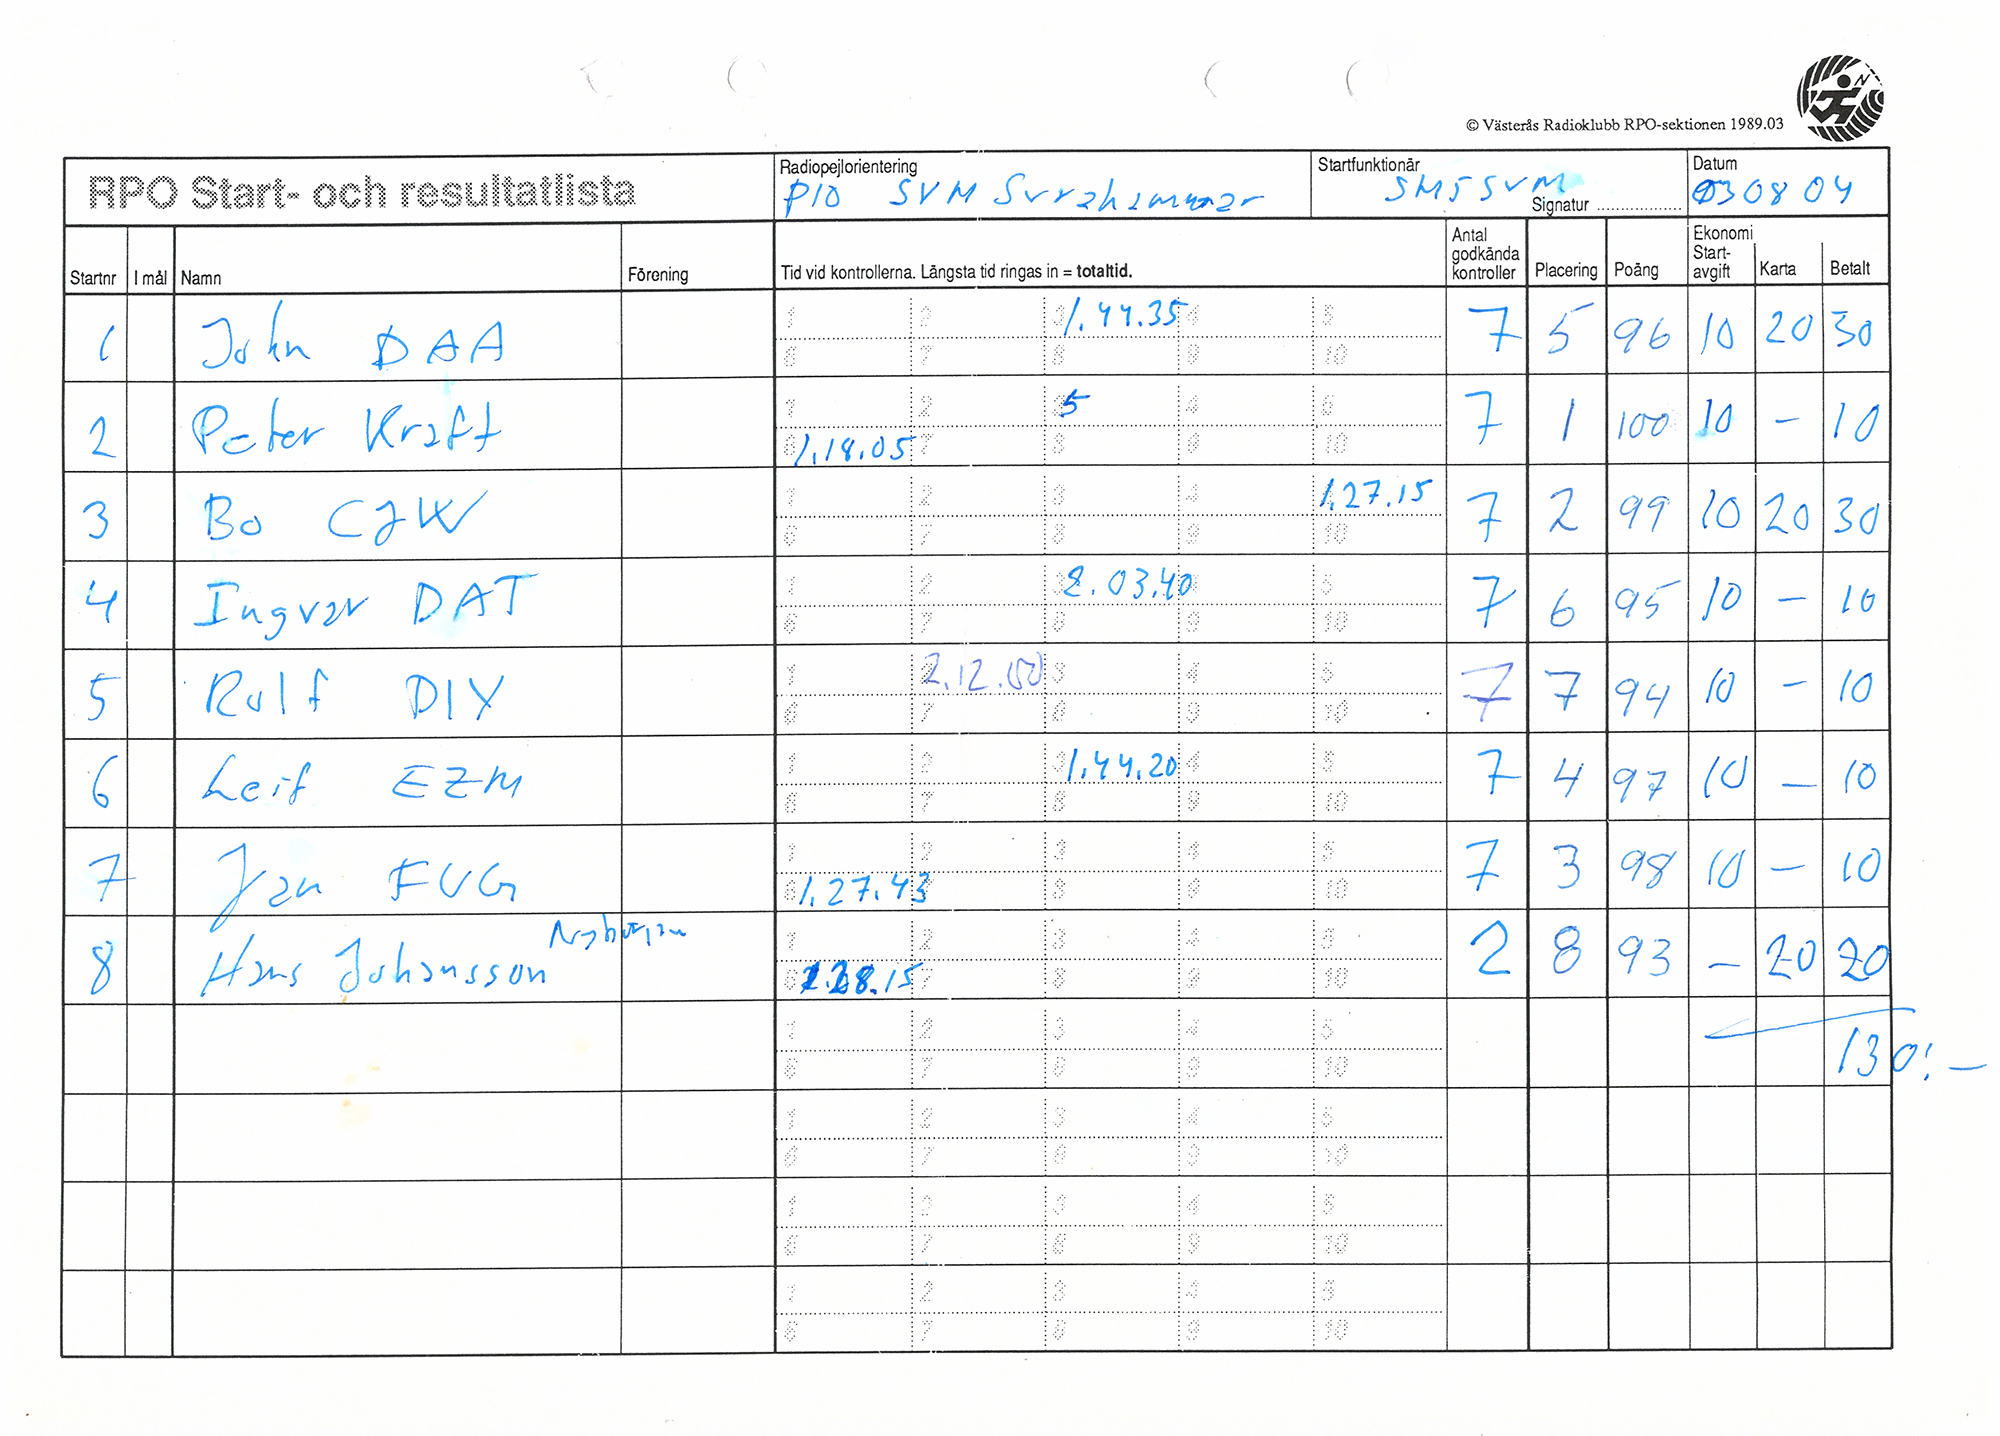 © Västerås Radioklubb RPO-sektionen 1989.03
RPO Start- och resultatlista
Radiopejlorientering
P10 SVM Surahammar
Startfunktionär
SM5SVM
Signatur ....................
Datum
030804
Startnr I mål Namn Förening Tid vid kontrollerna. Längsta tid ringas in = totaltid. Antal godkända kontroller Placering Poäng Ekonomi Start-avgift Karta Betalt
1 John DAA 1 2 3 1.44.35 4 5 7 5 96 10 20 30
6 7 8 9 10
2 Peter Kraft 1 2 3 5 4 5 7 1 100 10 - 10
6 1.18.05 7 8 9 10
3 Bo CJW 1 2 3 4 5 1.27.15 7 2 99 10 20 30
6 7 8 9 10
4 Ingvar DAT 1 2 3 2.03.40 4 5 7 6 95 10 - 10
6 7 8 9 10
5 Rolf DIY 1 2 2.12.00 3 4 5 7 7 94 10 - 10
6 7 8 9 10
6 Leif EZM 1 2 3 1.44.20 4 5 7 4 97 10 - 10
6 7 8 9 10
7 Jan FUG 1 2 3 4 5 7 3 98 10 - 10
6 1.27.43 7 8 9 10
8 Hans Johansson 1 2 3 4 5 2 8 93 - 20 20
6 1.28.15 7 8 9 10
1 2 3 4 5
130:-
6 7 8 9 10
1 2 3 4 5
6 7 8 9 10
1 2 3 4 5
6 7 8 9 10
1 2 3 4 5
6 7 8 9 10